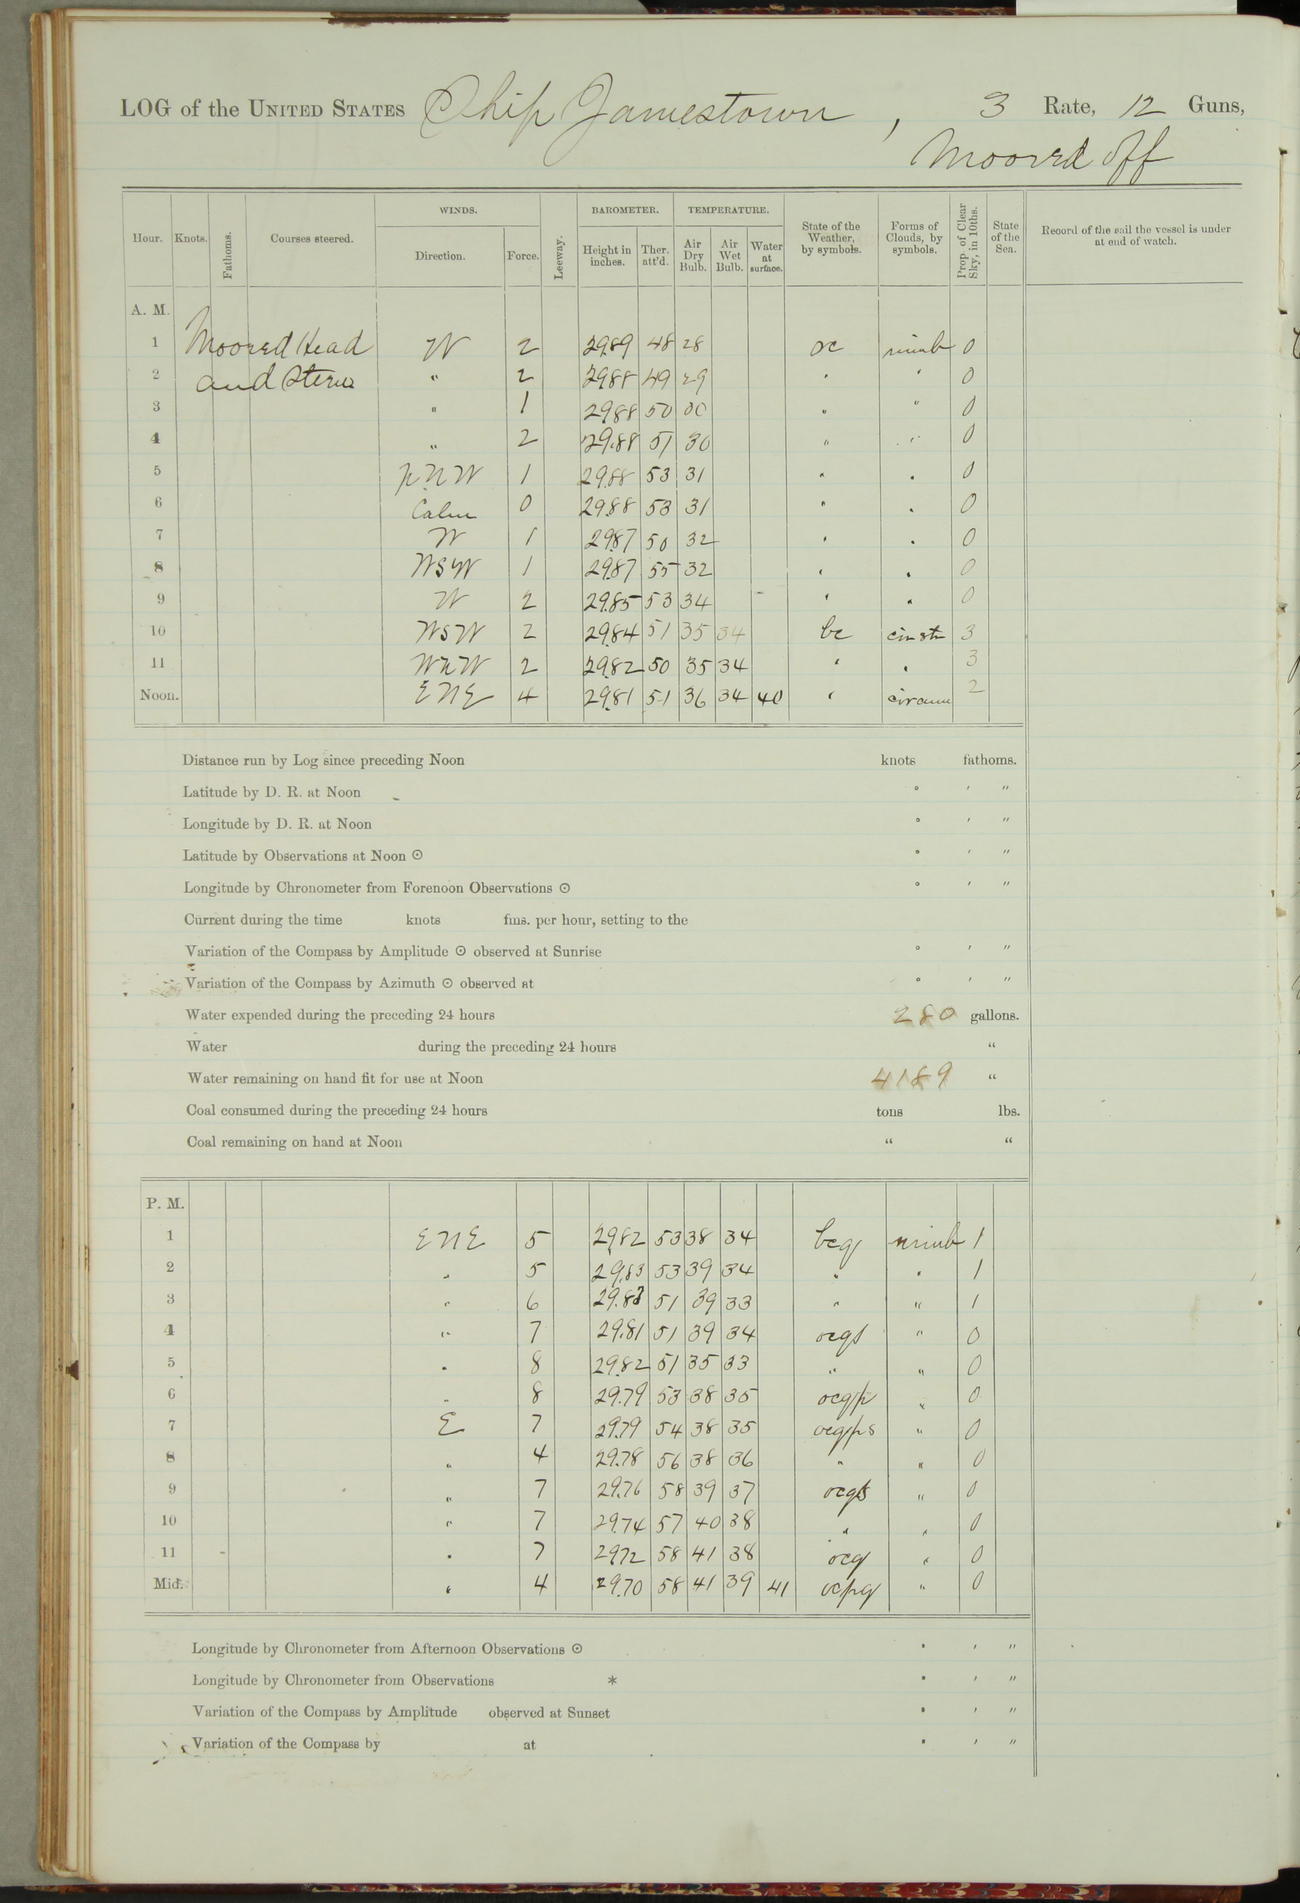 LOG of the UNITED STATES Ship Jamestown, 3 Rate, 12 Guns,
Moored off
WINDS. BAROMETER. TEMPERATURE.
Hour. Knots. Fathoms. Courses steered. Direction. Force. Leeway. Height in inches. Ther. att'd. Air Dry Bulb. Air Wet Bulb. Water at surface. State of the Weather, by symbols. Forms of Clouds, by symbols. Prop. of Clear Sky, in 10ths. State of the Sea. Record of the sail the vessel is under at end of watch.
A. M.
1 Moored Head W 2 29.89 48 28 oc nimb 0
2 and Stern " 2 29.88 49 29 " " 0
3 " 1 29.88 50 30 " " 0
4 " 2 29.88 51 30 " " 0
5 NNW 1 29.88 53 31 " " 0
6 Calm 0 29.88 53 31 " " 0
7 W 1 29.87 50 32 " " 0
8 WSW 1 29.87 55 32 " " 0
9 W 2 29.85 53 34 " " 0
10 WSW 2 29.84 51 35 34 bc cir str 3
11 WNW 2 29.82 50 35 34 " " 3
Noon. ENE 4 29.81 51 36 34 40 " circum 2
Distance run by Log since preceding Noon knots fathoms.
Latitude by D. R. at Noon ° ′ ″
Longitude by D. R. at Noon ° ′ ″
Latitude by Observations at Noon ⊙ ° ′ ″
Longitude by Chronometer from Forenoon Observations ⊙ ° ′ ″
Current during the time knots fms. per hour, setting to the
Variation of the Compass by Amplitude ⊙ observed at Sunrise ° ′ ″
Variation of the Compass by Azimuth ⊙ observed at ° ′ ″
Water expended during the preceding 24 hours 280 gallons.
Water during the preceding 24 hours "
Water remaining on hand fit for use at Noon 4189 "
Coal consumed during the preceding 24 hours tons lbs.
Coal remaining on hand at Noon " "
P. M.
1 ENE 5 29.82 53 38 34 bcq nimb 1
2 " 5 29.83 53 39 34 " " 1
3 " 6 29.83 51 39 33 " " 1
4 " 7 29.81 51 39 34 ocqs " 0
5 " 8 29.82 51 35 33 " " 0
6 " 8 29.79 53 38 35 ocqp " 0
7 E 7 29.79 54 38 35 ocqps " 0
8 " 4 29.78 56 38 36 " " 0
9 " 7 29.76 58 39 37 ocqs " 0
10 " 7 29.74 57 40 38 " " 0
11 " 7 29.72 58 41 38 ocq " 0
Mid. " 4 29.70 58 41 39 41 ocpq " 0
Longitude by Chronometer from Afternoon Observations ⊙ ° ′ ″
Longitude by Chronometer from Observations * ° ′ ″
Variation of the Compass by Amplitude observed at Sunset ° ′ ″
Variation of the Compass by at ° ′ ″